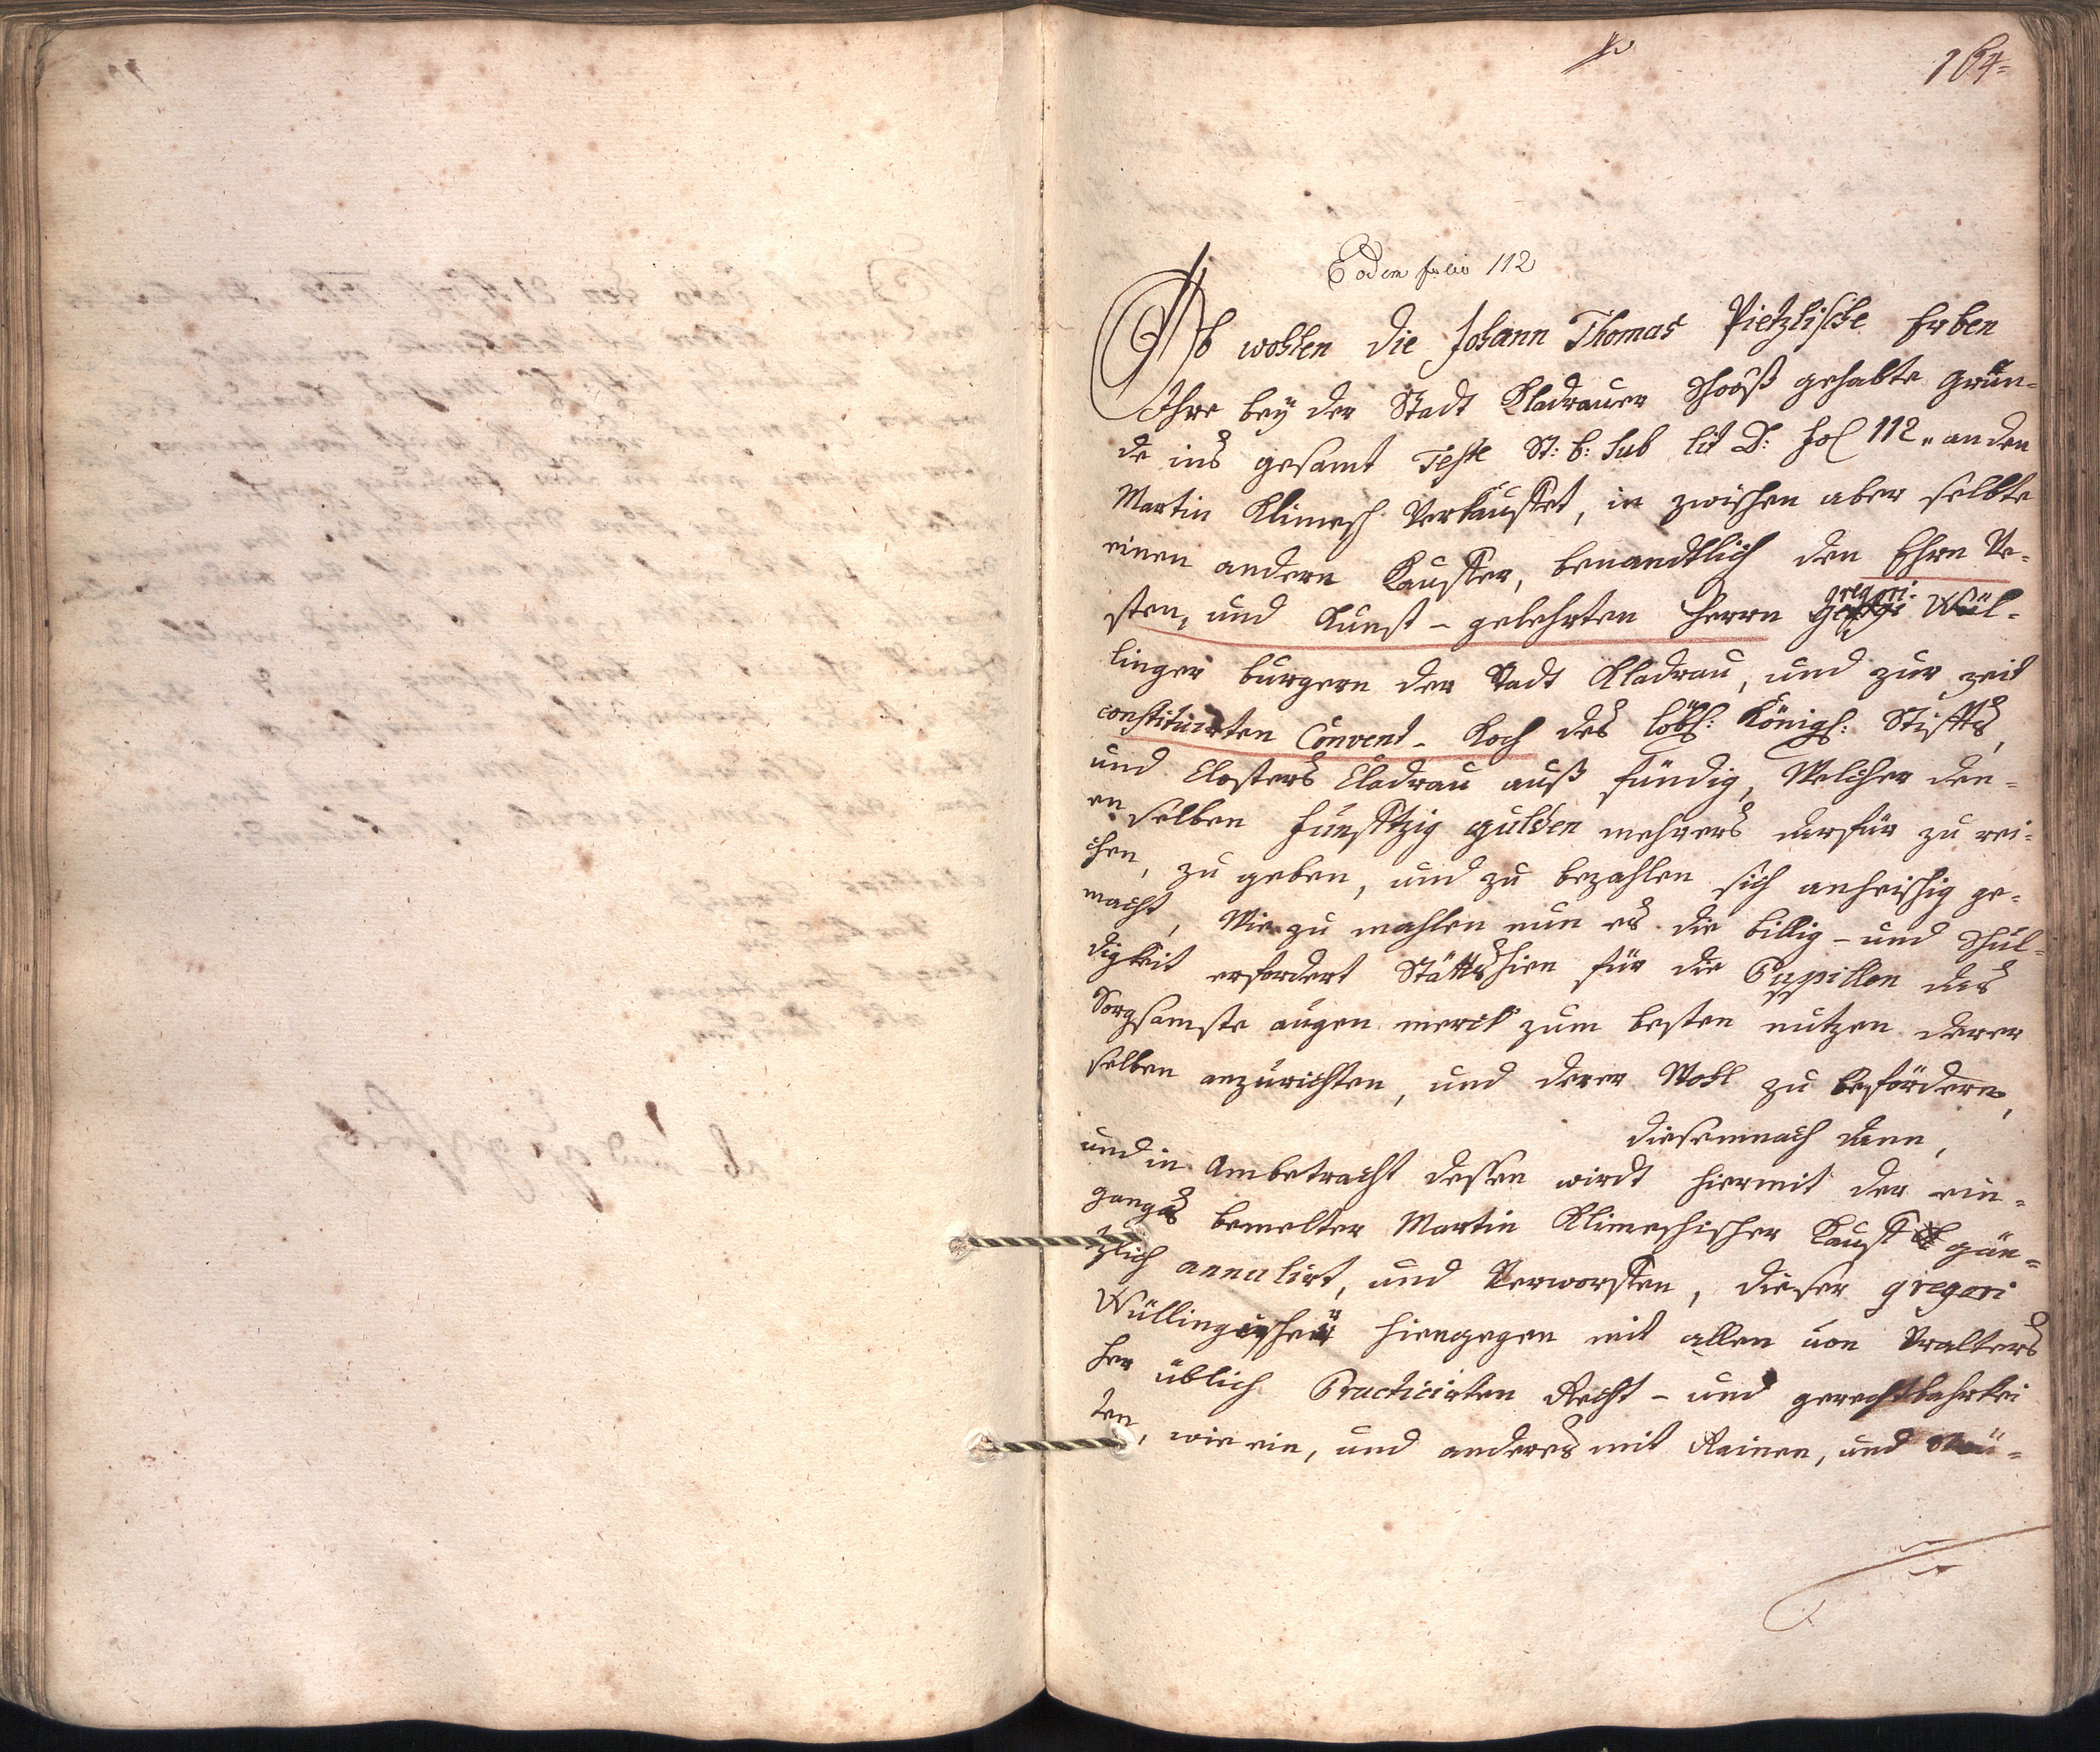 164
Eodem folio 112
Ob wohlen die Johann Thomas Pietzlische Erben
Ihre beÿ der Stadt Kladrauer Shooß gehabte Grün-
de ins gesamt Teste St: b: sub lit D: fol 112 „ an den
Martin Klimesch Verkauffet, in zwischen aber selbte
einen andern Kauffer, benandtlich den Ehrn Ve-
sten, und Kunst - gelehrten Herrn gregori Wül-
linger burgern der Stadt Kladrau, und zur zeit
constituirten Convent - Koch des löbl: Königl: Stiffts,
und Closters Cladrau auß fündig, Welcher den-
en selben funfftzig gulden mehrers darfür zu rei-
chen, zu geben, und zu bezahlen sich anheischig ge-
macht, Wie zu mahlen nun es die billig - und Schul-
digkeit erfordert Stätts hin für die Pupillen das
Sorgsamste augen merck zum besten nutzen derer
selben anzurichten, und derer Wohl zu befördern,
diesemnach dann,
und in Ambetracht dessen wirdt hiermit der ein-
gangs bemelter Martin Klimeschischer Kauff gän-
tzlich annulirt, und Verworffen, dieser gregori
Wüllingerische hiengegen mit allen von Uralters
her üblich Practicirten Recht - und gerechtbahrkei
ten, wie ein, und anderes mit Rainen, und